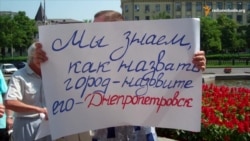 Мы знаем,
как назвать
город-назовите
его-Днепропетровск